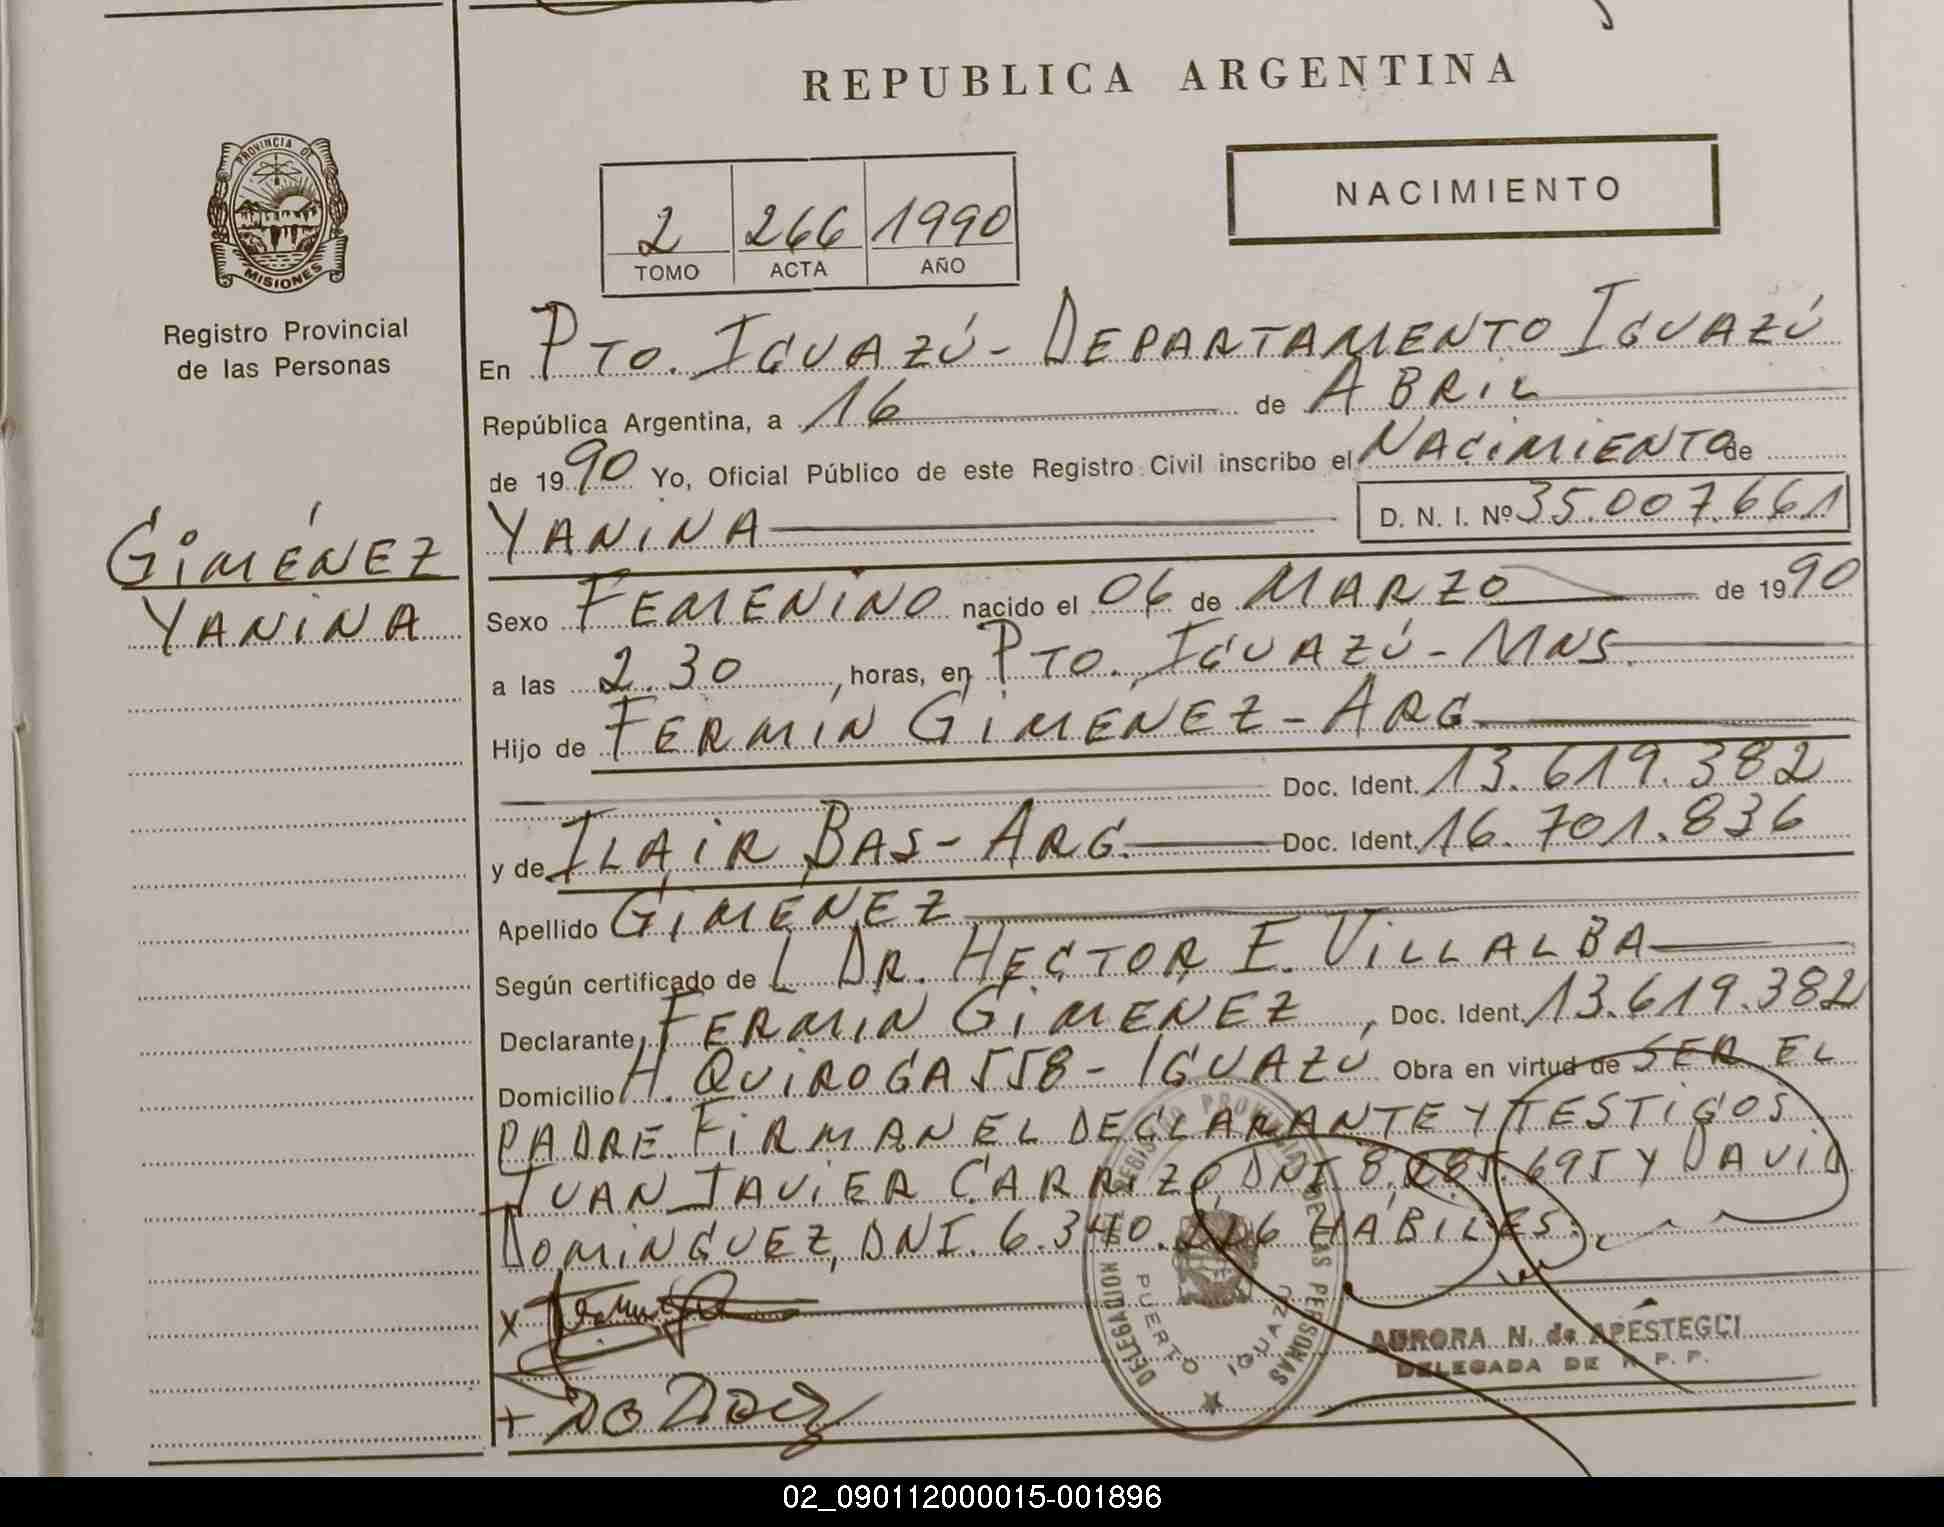 REPUBLICA ARGENTINA
PROVINCIA DE
MISIONES
Registro Provincial
de las Personas
2 266 1990
TOMO ACTA AÑO
NACIMIENTO
GIMÉNEZ
YANINA
En PTO. IGUAZÚ - DEPARTAMENTO IGUAZÚ
República Argentina, a 16 de ABRIL
de 1990 Yo, Oficial Público de este Registro Civil inscribo el NACIMIENTO de
YANINA D. N. I. Nº 35.007.661
Sexo FEMENINO nacido el 06 de MARZO de 1990
a las 2.30 , horas, en PTO. IGUAZÚ - MNS.
Hijo de FERMIN GIMENEZ - ARG
Doc. Ident. 13.619.382
y de ILAIR BAS - ARG. Doc. Ident. 16.701.836
Apellido GIMÉNEZ
Según certificado de L DR. HECTOR E. VILLALBA
Declarante, FERMIN GIMENEZ , Doc. Ident. 13.619.382
Domicilio H. QUIROGA 558 - IGUAZÚ Obra en virtud de SER EL
PADRE. FIRMAN EL DECLARANTE Y TESTIGOS
JUAN JAVIER CARRIZO, DNI 8. .695 Y DAVID
DOMINGUEZ, DNI. 6.340. HABILES.
DELEGACION REGISTRO PROVINCIAL DE LAS PERSONAS
PUERTO IGUAZU
AURORA N. de APÉSTEGUI
DELEGADA DE R. P. P.
02_090112000015-001896